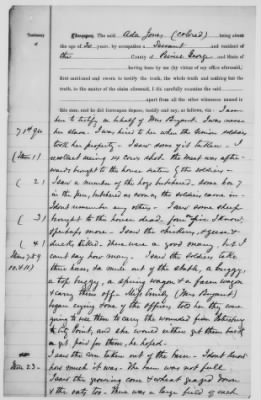 Testimony
of
Thereupon, The said Ada Jones (colored) being about
the age of 30 years, by occupation a Servant and resident of
the County of Prince George and State of
having been by me (by virtue of my office aforesaid),
first cautioned and sworn to testify the truth, the whole truth and nothing but the
truth, in the matter of the claim aforesaid, I did carefully examine the said
apart from all the other witnesses named in
this case, and he did thereupon depose, testify and say, as follows, viz: I am
here to testify in behalf of Mrs Bryant. I was never
her slave. I was hired to her when the Union soldiers
took her property. I saw some of it taken. I
recollect seeing 14 cows shot. The meat was after-
wards brought to the house eaten by the soldiers.
(Item 1)
(2) I saw a number of the hogs butchered. Some 6 or 7
in the pen, butchered as soon as the soldiers came in.
I dont remember any others. I saw some sheep
(3) brought to the house dead, four or five I know,
perhaps more. I saw the chickens, &
(4) ducks killed. There were a good many, but I
cant say how many. I saw the soldiers take
Items 7 8 9
10 & 11)
three horses, & a mule out of the stable, a buggy,
a top buggy, a spring wagon & a farm wagon
& carry them off. Miss Emily (Mrs Bryant)
began crying & one of the officers told her they were
going to use them to carry the wounded from Petersburg
to City Point, and she would either get them back
or get paid for them, he hoped.
Item 23. I saw the corn taken out of the barn. I dont know
how much it was. The barn was not full.
I saw the growing corn & wheat grazed down
& the oats too. There was a large field of each